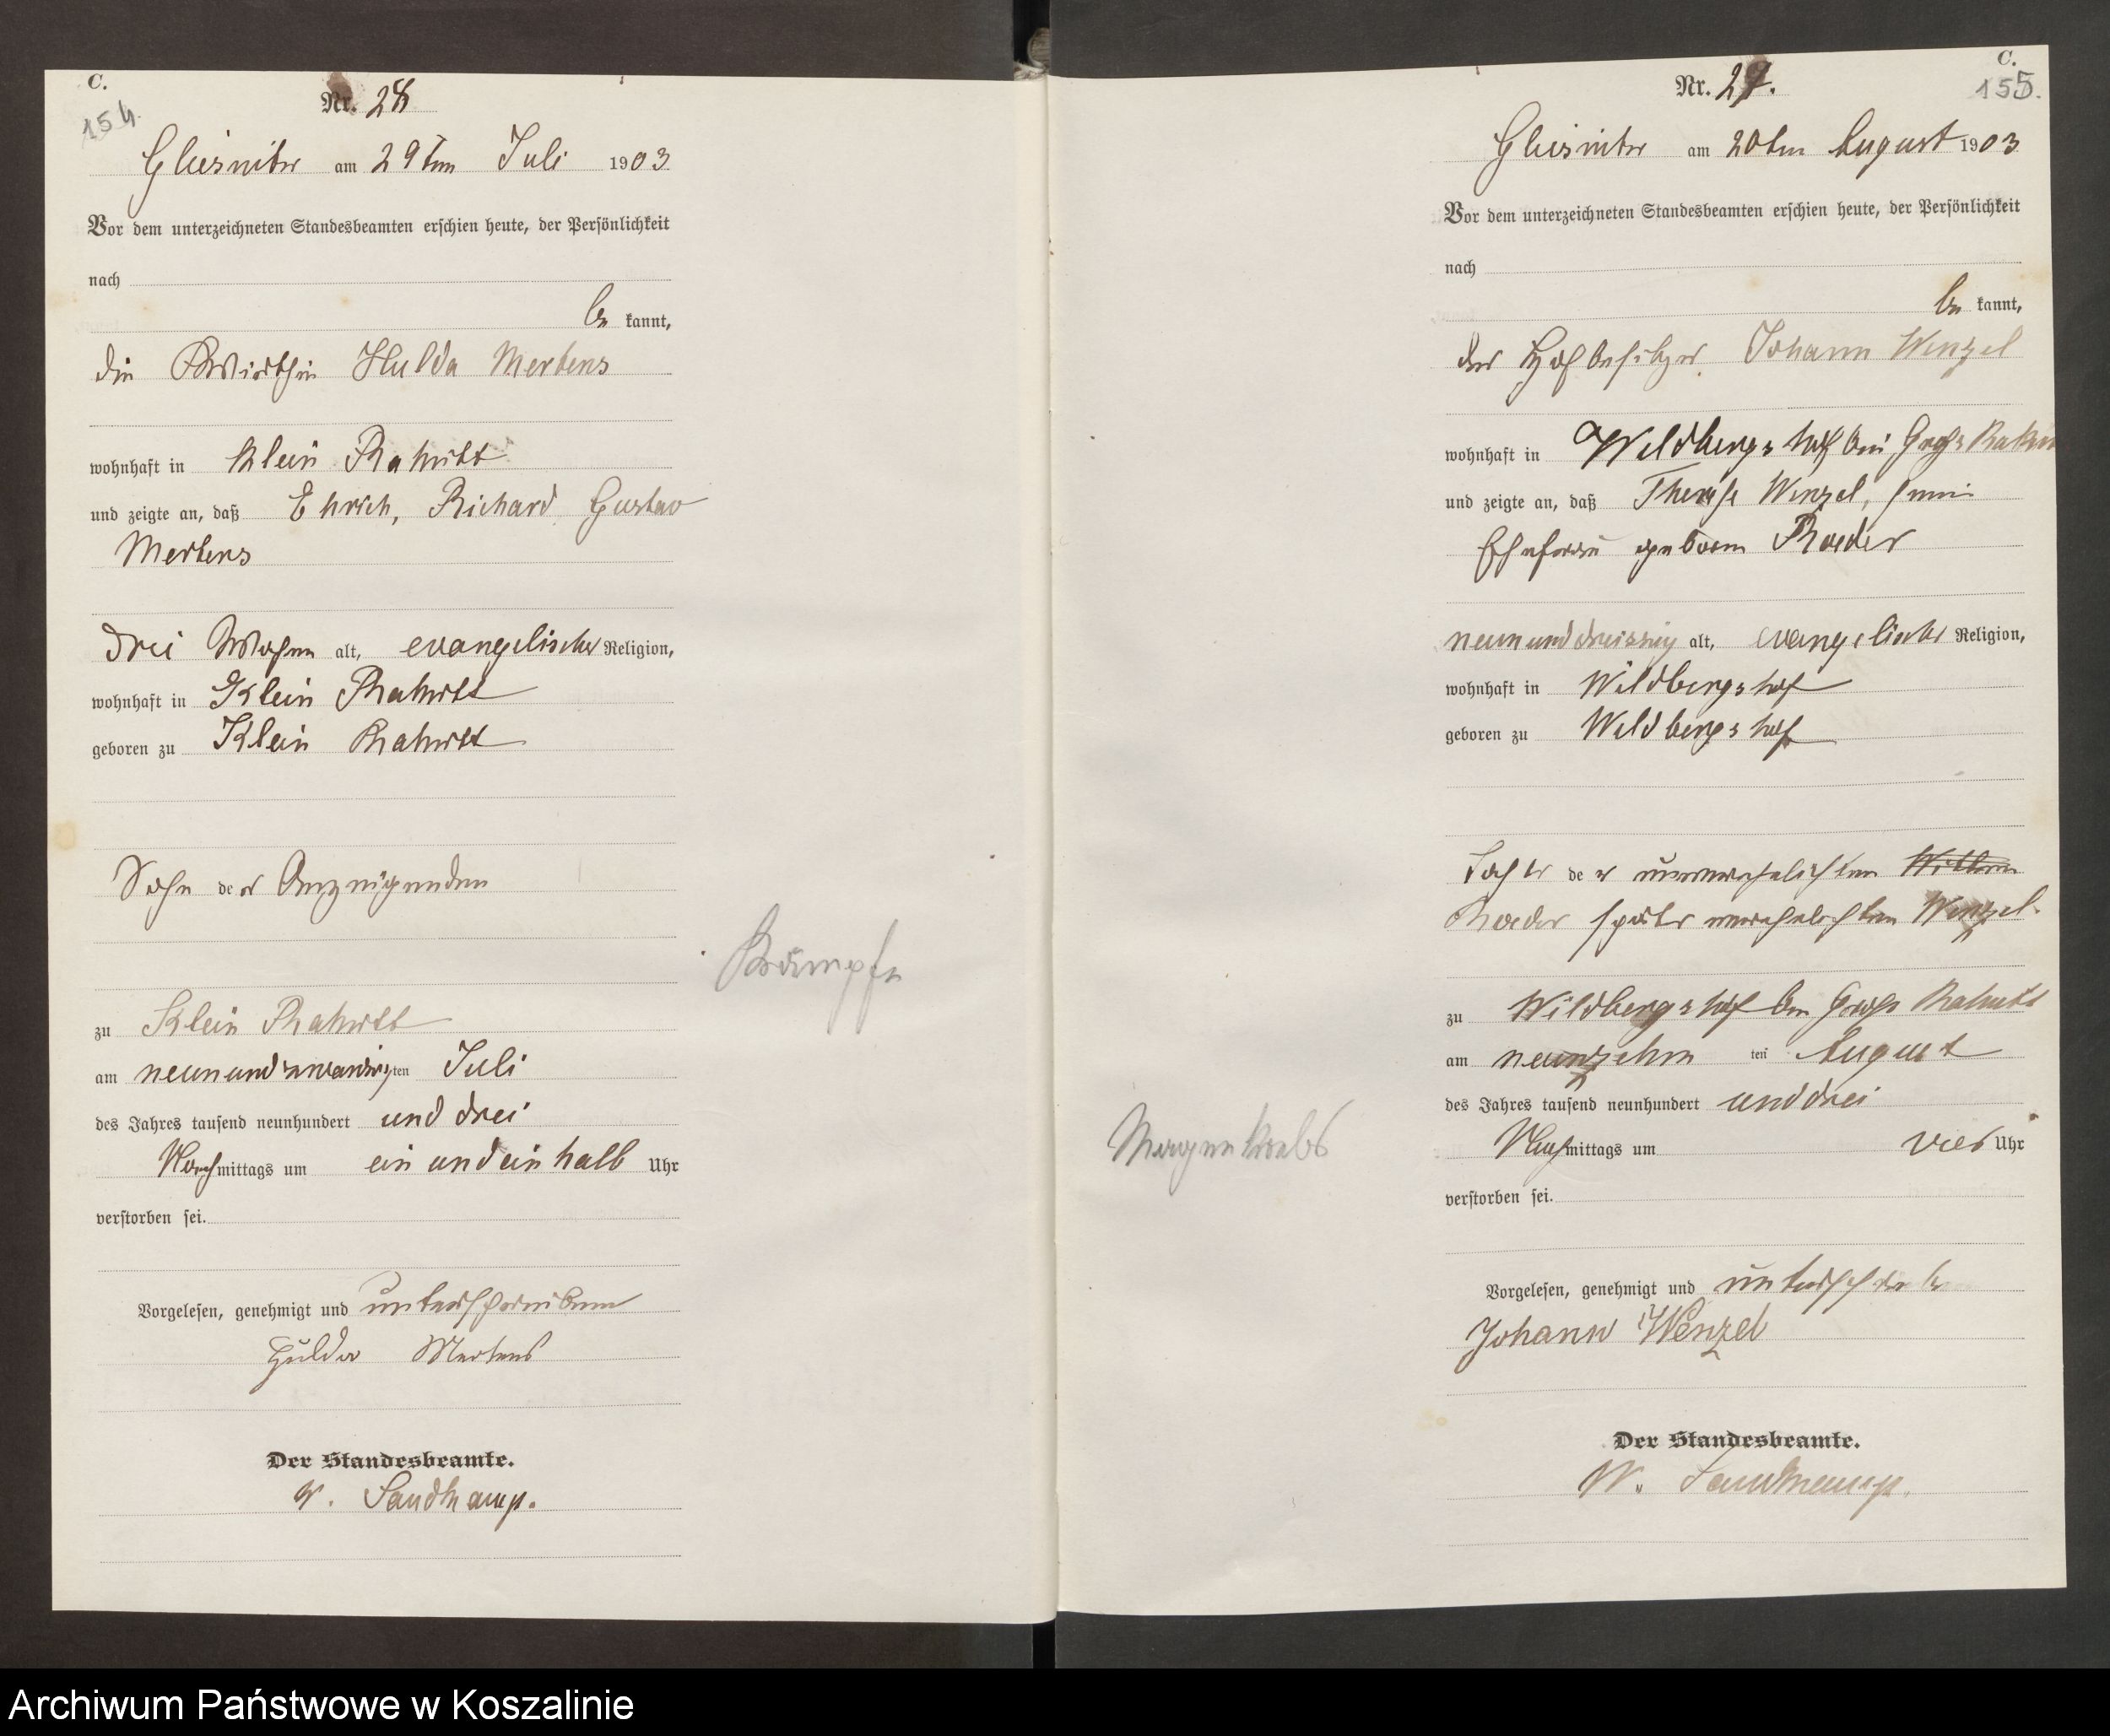 C.
154.
Nr. 28
Gliesnitz am 29ten Juli 1903
Vor dem unterzeichneten Standesbeamten erschien heute, der Persönlichkeit
nach
be kannt,
die Hulda Mertens
wohnhaft in Klein Rakitt
und zeigte an, daß Ehrich, Richard Gustav
Mertens
drei Wochen alt, evangelischer Religion,
wohnhaft in Klein Rakitt
geboren zu Klein Rakitt
Sohn der Anzeigenden
Krämpfe
zu Klein Rakitt
am neunundzwanzigten Juli
des Jahres tausend neunhundert und drei
Nachmittags um ein und ein halb Uhr
verstorben sei.
Vorgelesen, genehmigt und unterschrieben
Hulda Mertens
Der Standesbeamte.
W. Sandkamp.
C.
155.
Nr. 29.
Gliesnitz am 20ten August 1903
Vor dem unterzeichneten Standesbeamten erschien heute, der Persönlichkeit
nach
be kannt,
der Hofbesitzer Johann Wenzel
wohnhaft in Wildbergshof bei Groß
und zeigte an, daß Therese Wenzel, seine
Ehefrau geboren Roeder
neununddreissig alt, evangelischer Religion,
wohnhaft in Wildbergshof
geboren zu Wildbergshof
Tochter der unverehelichten
Roeder später verehelichten Wenzel.
zu Wildbergshof bei Groß Rakitt
am neunzehn ten August
des Jahres tausend neunhundert und drei
Magenkrebs
Nachmittags um vier Uhr
verstorben sei.
Vorgelesen, genehmigt und unterschrieben
Johann Wenzel
Der Standesbeamte.
W. Sandkamp.
Archiwum Państwowe w Koszalinie